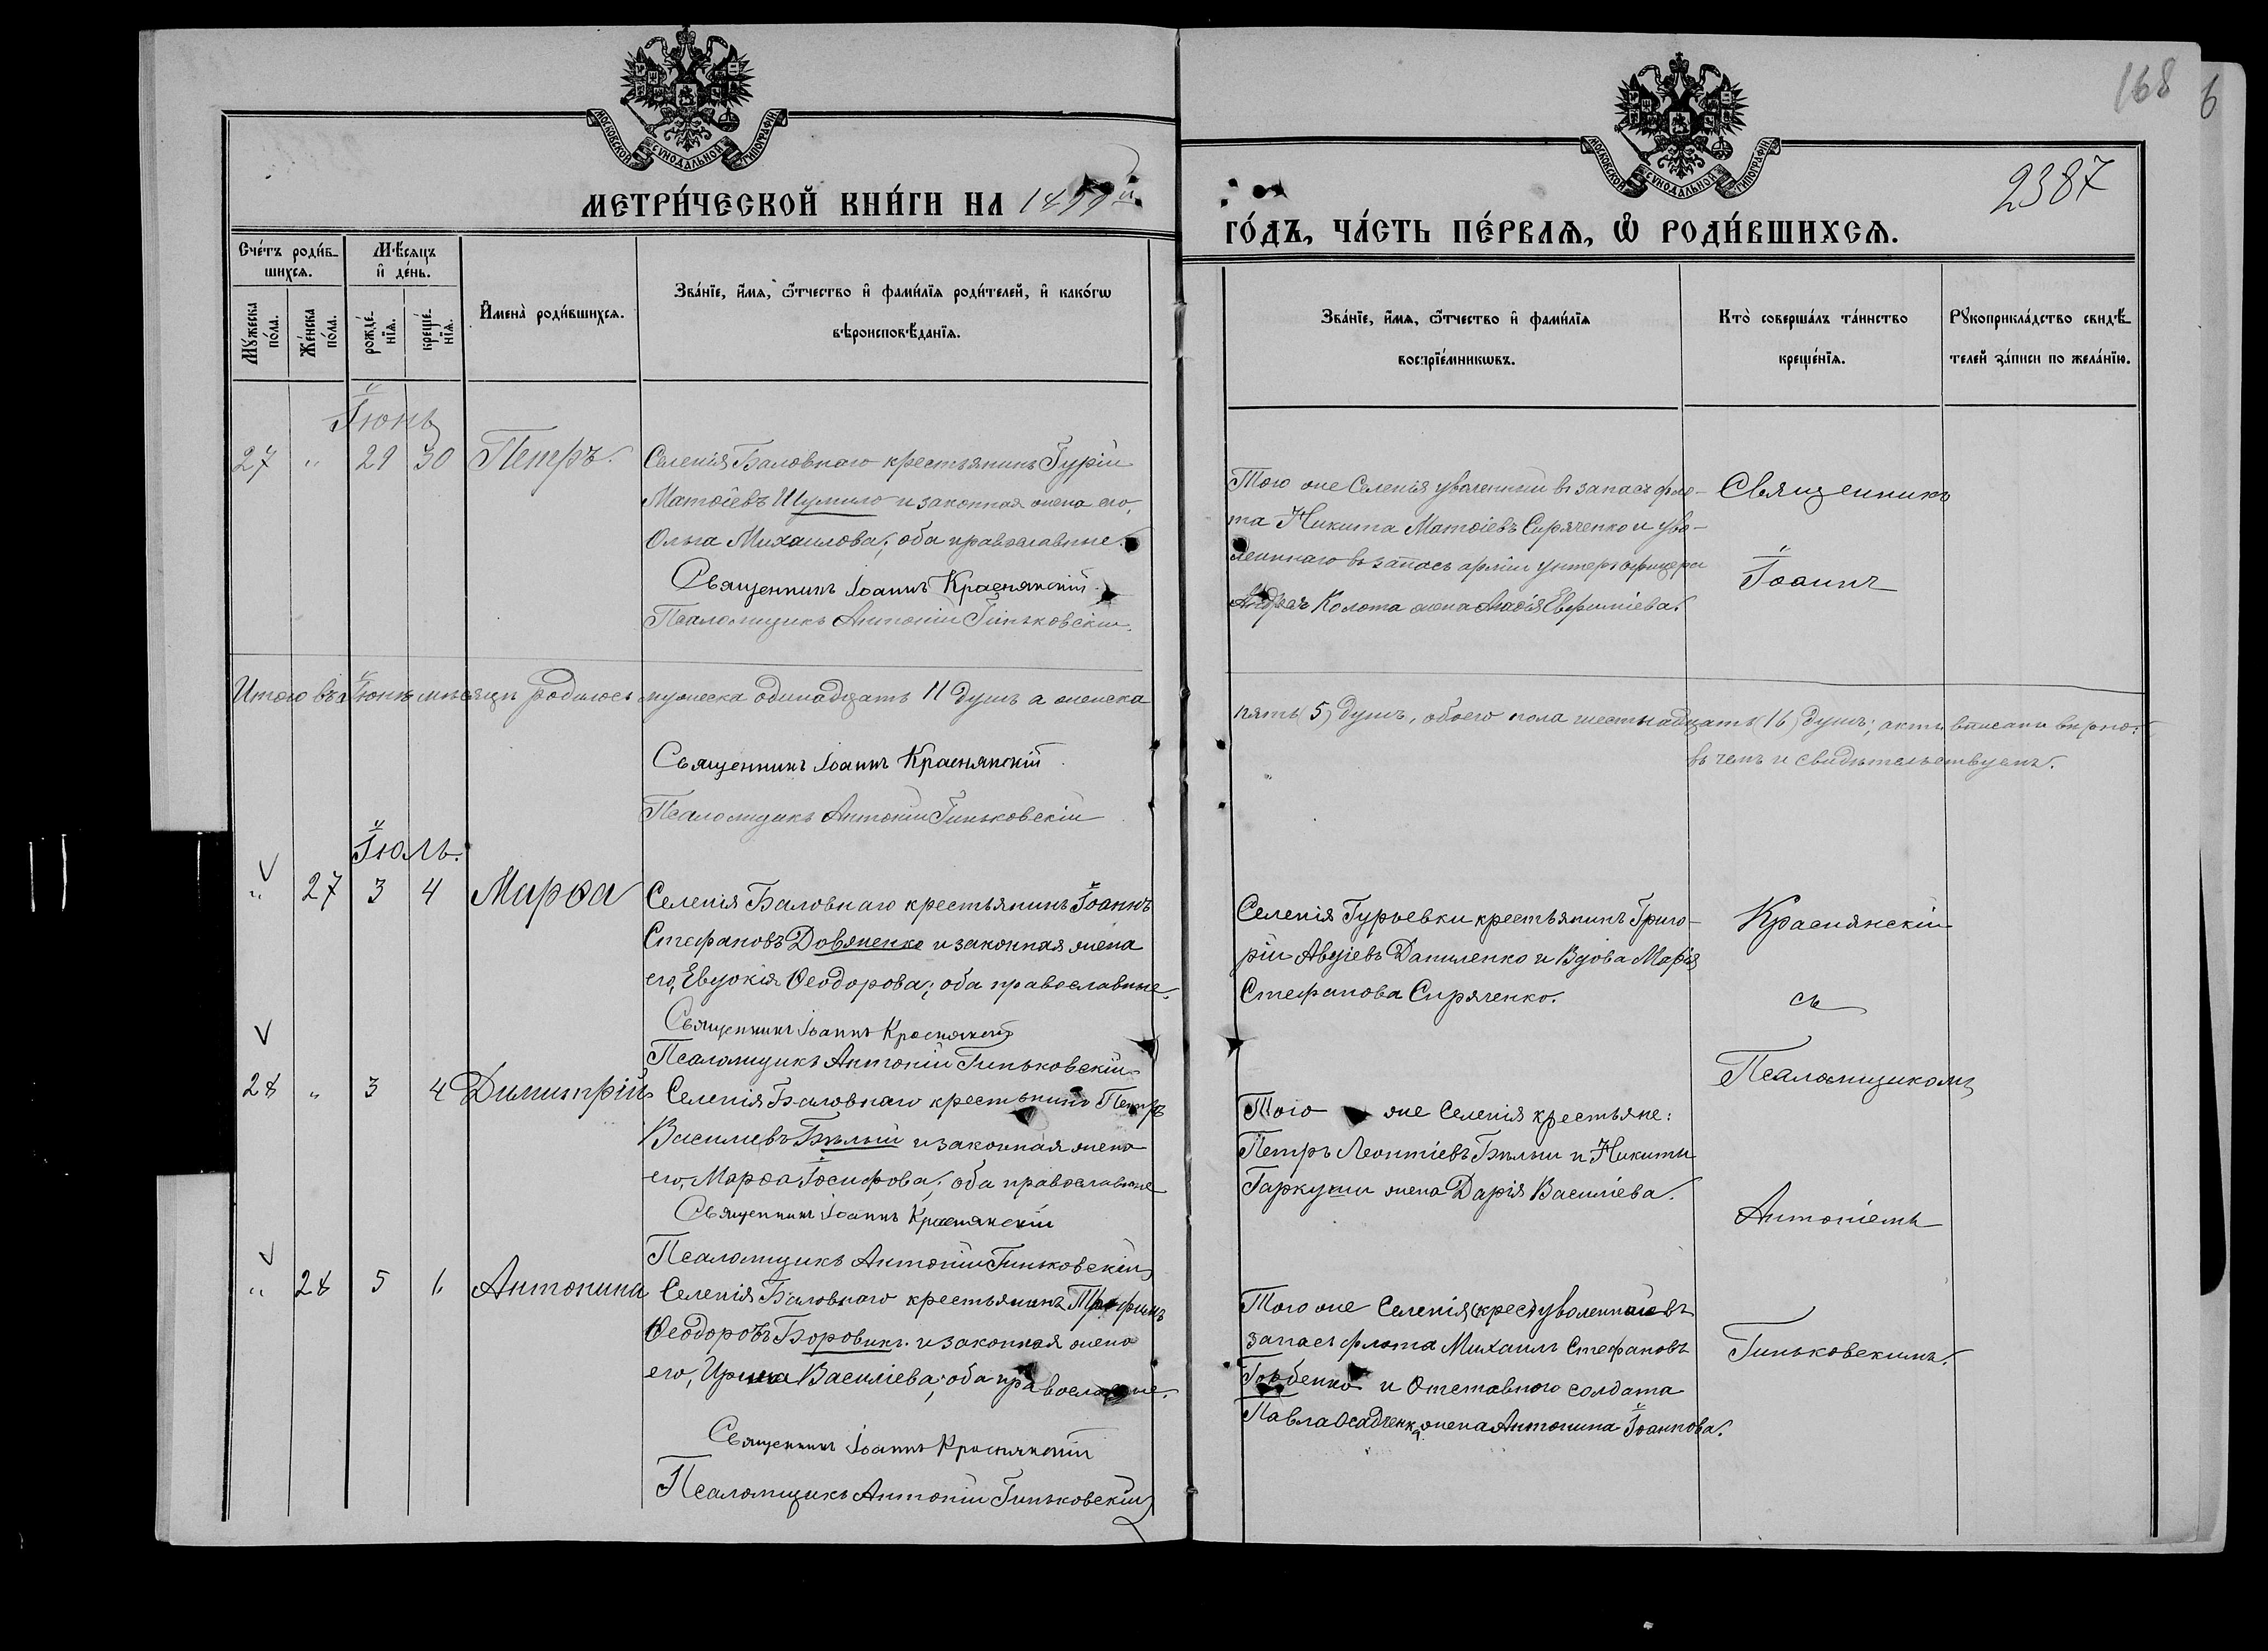 168
6
2387
МОСКОВСКОЙ СѴНОДАЛЬНОЙ ТИПОГРАФІИ
МОСКОВСКОЙ СѴНОДАЛЬНОЙ ТИПОГРАФІИ
МЕТРИ́ЧЕСКОЙ КНИ́ГИ НА 1899й
ГО́ДЪ, ЧА́СТЬ ПЕ́РВАЯ, Ѿ РОДИ́ВШИХСЯ.
Сче́тъ роди́вшихся.
Мужеска по́ла.
Же́нска по́ла.
Мѣ́сяцъ и҆ де́нь.
рожде́нїя.
креще́нїя.
И҆мена̀ роди́вшихся.
Зва́нїе, и҆́мя, ѻ҆́тчество и҆ фами́лїя роди́телей, и҆ како́гѡ
вѣроисповѣ́данїя.
Зва́нїе, и҆́мя, ѻ҆́тчество и҆ фами́лїя
воспрїе́мникѡвъ.
Кто̀ соверша́лъ та́инство
креще́нїя.
Рꙋкоприкла́дство свидѣ́телей за́писи по жела́нїю.
Іюнь
27 " 29 30 Петръ.
Селенія Баловнаго крестьянинъ Гурій
Матѳіевъ Шумило и законная жена его,
Ольга Михаилова; оба православные.
Священникъ Іоаннъ Краснянскій
Псаломщикъ Антоній Гиньковскій.
Того же Селенія уволенный въ запасъ фло-
та Никита Матѳіевъ Сиряченко и уво-
леннаго въ запасъ арміи унтеръ офицера
Андрея Колота жена Агаѳія Евфиміева.
Священникъ
Іоаннъ
Итого въ Іюнѣ мѣсяцѣ родилось мужеска одинадцать 11 душъ а женска
пять (5) душъ, обоего пола шестнадцать (16) душъ; акты вписаны вѣрно:
въ чемъ и свидѣтельствуемъ.
Священникъ Іоаннъ Краснянскій
Псаломщикъ Антоній Гиньковскій
Іюль.
" 27 3 4 Марѳа
Селенія Баловнаго крестьянинъ Іоаннъ
Стефановъ Довженко и законная жена
его, Евдокія Ѳеодорова; оба православные.
Священникъ Іоаннъ Краснянскій
Псаломщикъ Антоній Гиньковскій
Селенія Гурьевки крестьянинъ Григо-
рій Авдіевъ Даниленко и Вдова Марія
Стефанова Сиряченко.
Краснянскій
съ
Псаломщикомъ
28 " 3 4 Димитрій
Селенія Баловнаго крестьянинъ Петръ
Василіевъ Бѣлый и законная жена
его, Марѳа Іосифова; оба православные
Священникъ Іоаннъ Краснянскій
Псаломщикъ Антоній Гиньковскій
Того же Селенія крестьяне:
Петръ Леонтіевъ Бѣлый и Никиты
Гаркуши жена Дарія Василіева.
Антоніемъ
" 28 5 6 Антонина
Селенія Баловнаго крестьянинъ Трофимъ
Ѳеодоровъ Боровикъ и законная жена
его, Ирина Василіева; оба православные.
Священникъ Іоаннъ Краснянскій
Псаломщикъ Антоній Гиньковскій
Того же Селенія уволенный въ
запасъ флота Михаилъ Стефановъ
Горбенко и Отставного солдата
Павла Осадченка жена Антонина Іоаннова.
Гиньковскимъ.